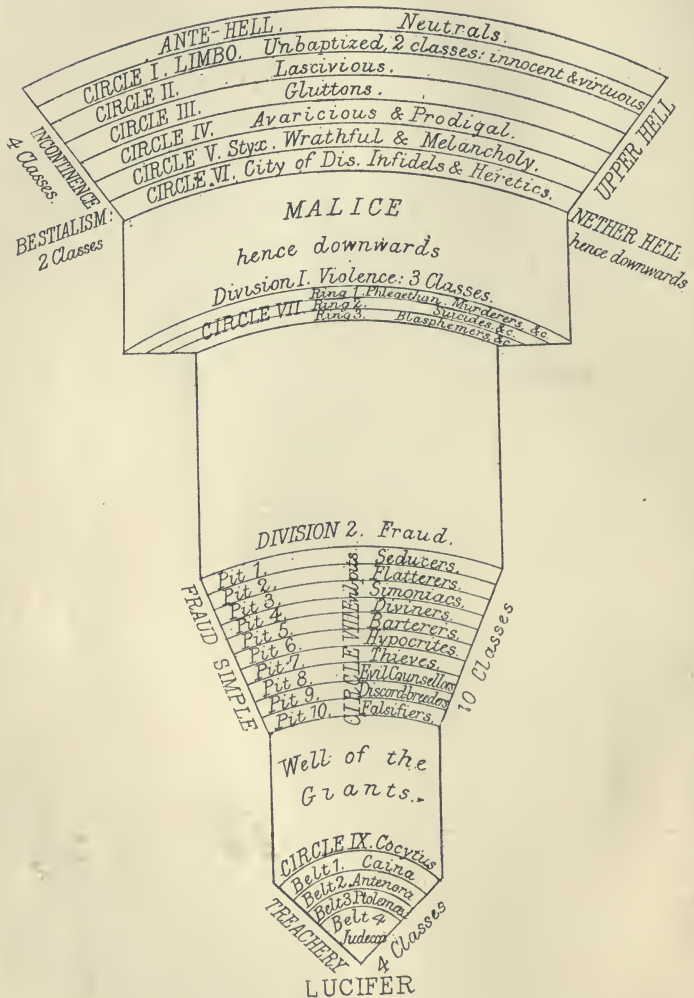 ANTE-HELL. Neutrals.
CIRCLE I. LIMBO. Unbaptized, 2 classes: innocent & virtuous
CIRCLE II. Lascivious.
CIRCLE III. Gluttons.
CIRCLE IV. Avaricious & Prodigal.
CIRCLE V. Styx. Wrathful & Melancholy.
CIRCLE VI. City of Dis. Infidels & Heretics.
INCONTINENCE
4 Classes.
UPPER HELL
BESTIALISM:
2 Classes
NETHER HELL
hence downwards
MALICE
hence downwards
Division I. Violence: 3 Classes.
CIRCLE VII.
Ring 1. Phlegethon. Murderers, &c.
Ring 2. Suicides, &c.
Ring 3. Blasphemers, &c.
DIVISION 2. Fraud.
FRAUD SIMPLE
10 Classes
CIRCLE VIII
Pit 1. Seducers.
Pit 2. Flatterers.
Pit 3. Simoniacs.
Pit 4. Diviners.
Pit 5. Barterers.
Pit 6. Hypocrites.
Pit 7. Thieves.
Pit 8. Evil Counsellors
Pit 9. Discord-breeders
Pit 10. Falsifiers.
Well of the
Giants.
CIRCLE IX. Cocytus
Belt 1. Caina
Belt 2. Antenora
Belt 3. Ptolemæa
Belt 4
Judecca
TREACHERY
4 Classes
LUCIFER